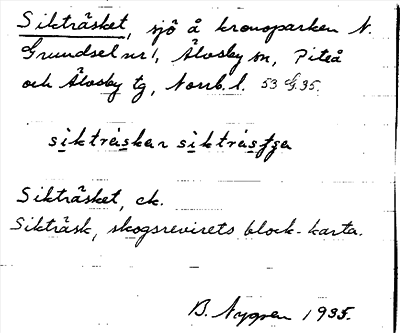 Sikträsket, sjö å kronoparken N.
Grundsel nr 1, Älvsby sn, Piteå
och Älvsby tg, Norrb. l. 53 G. 35.
Sikträsket, ek.
Sikträsk, skogsrevirets block-karta.
B. Nygren 1935.